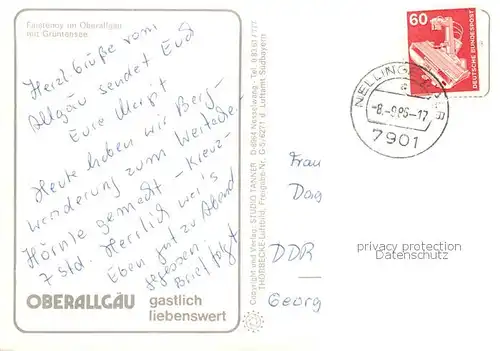 Faistenoy im Oberallgäu
mit Grüntensee
Herzl. Grüße vom
Allgäu sendet Euch
Eure Margit
Heute haben wir Berg-
wanderung zum Wertacher
Hörnle gemacht - Kreuz-
7 std. Herrlich war's
Eben gut zu Abend
gegessen.
Brief folgt
OBERALLGÄU gastlich
liebenswert
Copyright und Verlag: STUDIO TANNER D-8964 Nesselwang · Tel. 08361/727
THORBECKE-Luftbild, Freigabe-Nr. G-5/6271 d. Luftamt Südbayern
60
DEUTSCHE BUNDESPOST
NELLINGEN
a
-8.-9.86-17
7901
Frau
Dag
DDR
Georg
privacy protection
Datenschutz